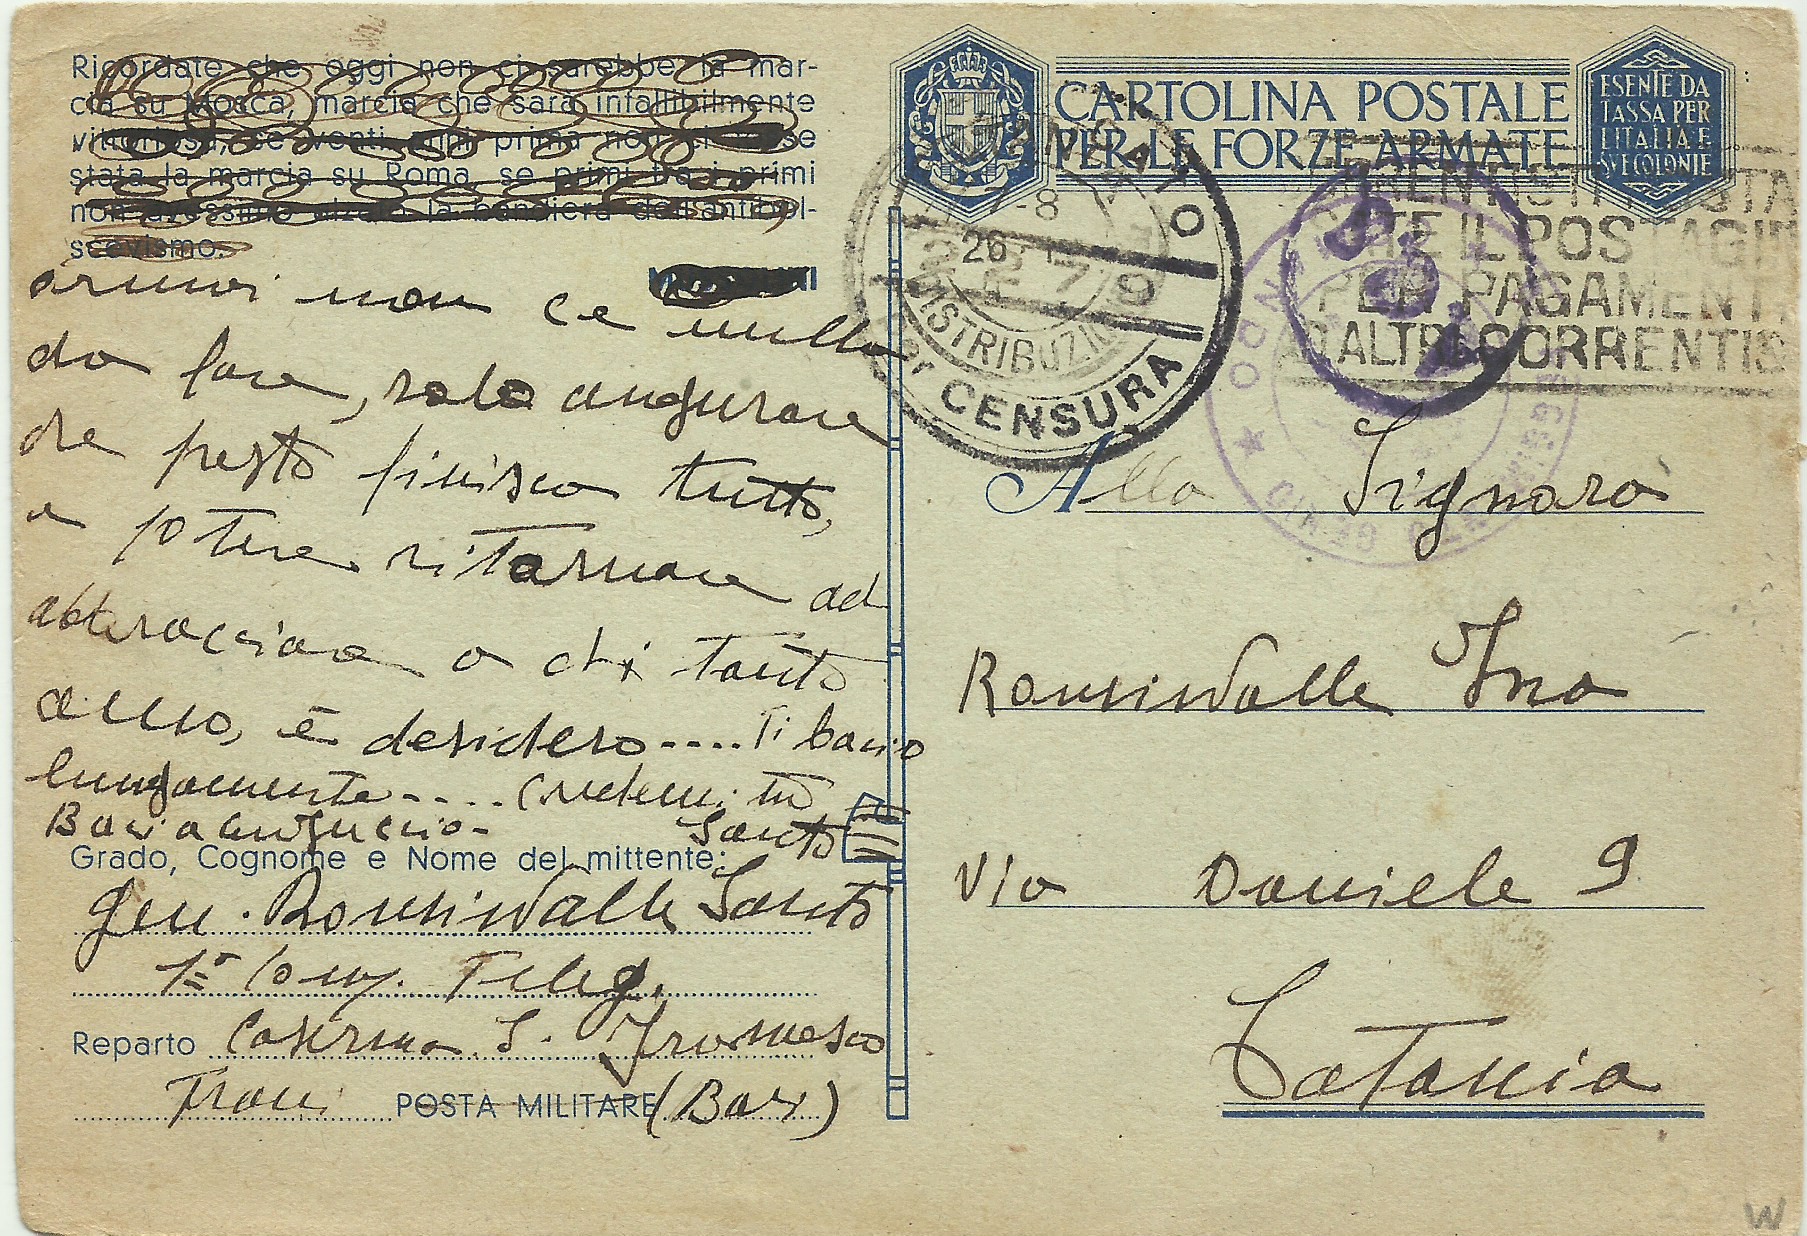 Ricordate che oggi non ci sarebbe la mar-
cia su Mosca, marcia che sarà infallibilmente
vittoriosa, se venti anni prima non ci fosse
stata la marcia su Roma, se primi tra i primi
non avessimo alzato la bandiera dell'antibol-
scevismo.
ormai non ce nulla
da fare, solo augurare
che presto finisca tutto,
e potere ritornare ad
abbracciare a chi tanto
amo, e desidero.... Ti bacio
lungamente.... credemi tuo
Santo
Grado, Cognome e Nome del mittente:
Gen. Roncivalle Santo
1ª Comp. Teleg.
Reparto Caserma S. Francesco
Trani POSTA MILITARE (Bari)
CARTOLINA POSTALE
PER LE FORZE ARMATE
ESENTE DA
TASSA PER
L'ITALIA E
SUE COLONIE
VINCOLATO
7-8
26
DISTRIBUZIONE
per CENSURA
IL POSTAGIRO
PER PAGAMENTI
AD ALTRI CORRENTISTI
GENIO
Alla Signora
Roncivalle Ina
Via Daniele 9
Catania
W